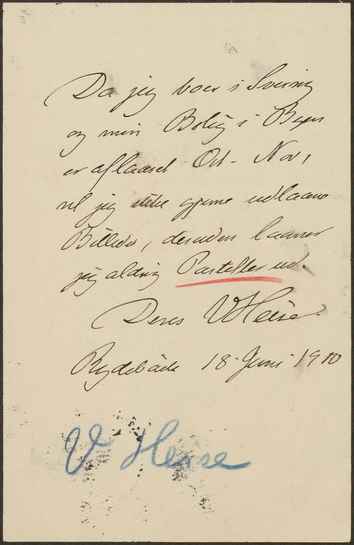 Da jeg boer i Sverrig
og min Bolig i Byen
er aflaaset Oct - Nov,
vil jeg ikke gjerne udlaane
Billeder, desuden laaner
jeg aldrig Pasteller ud.
Deres V Heise.
18 Juni 1910
V Heise